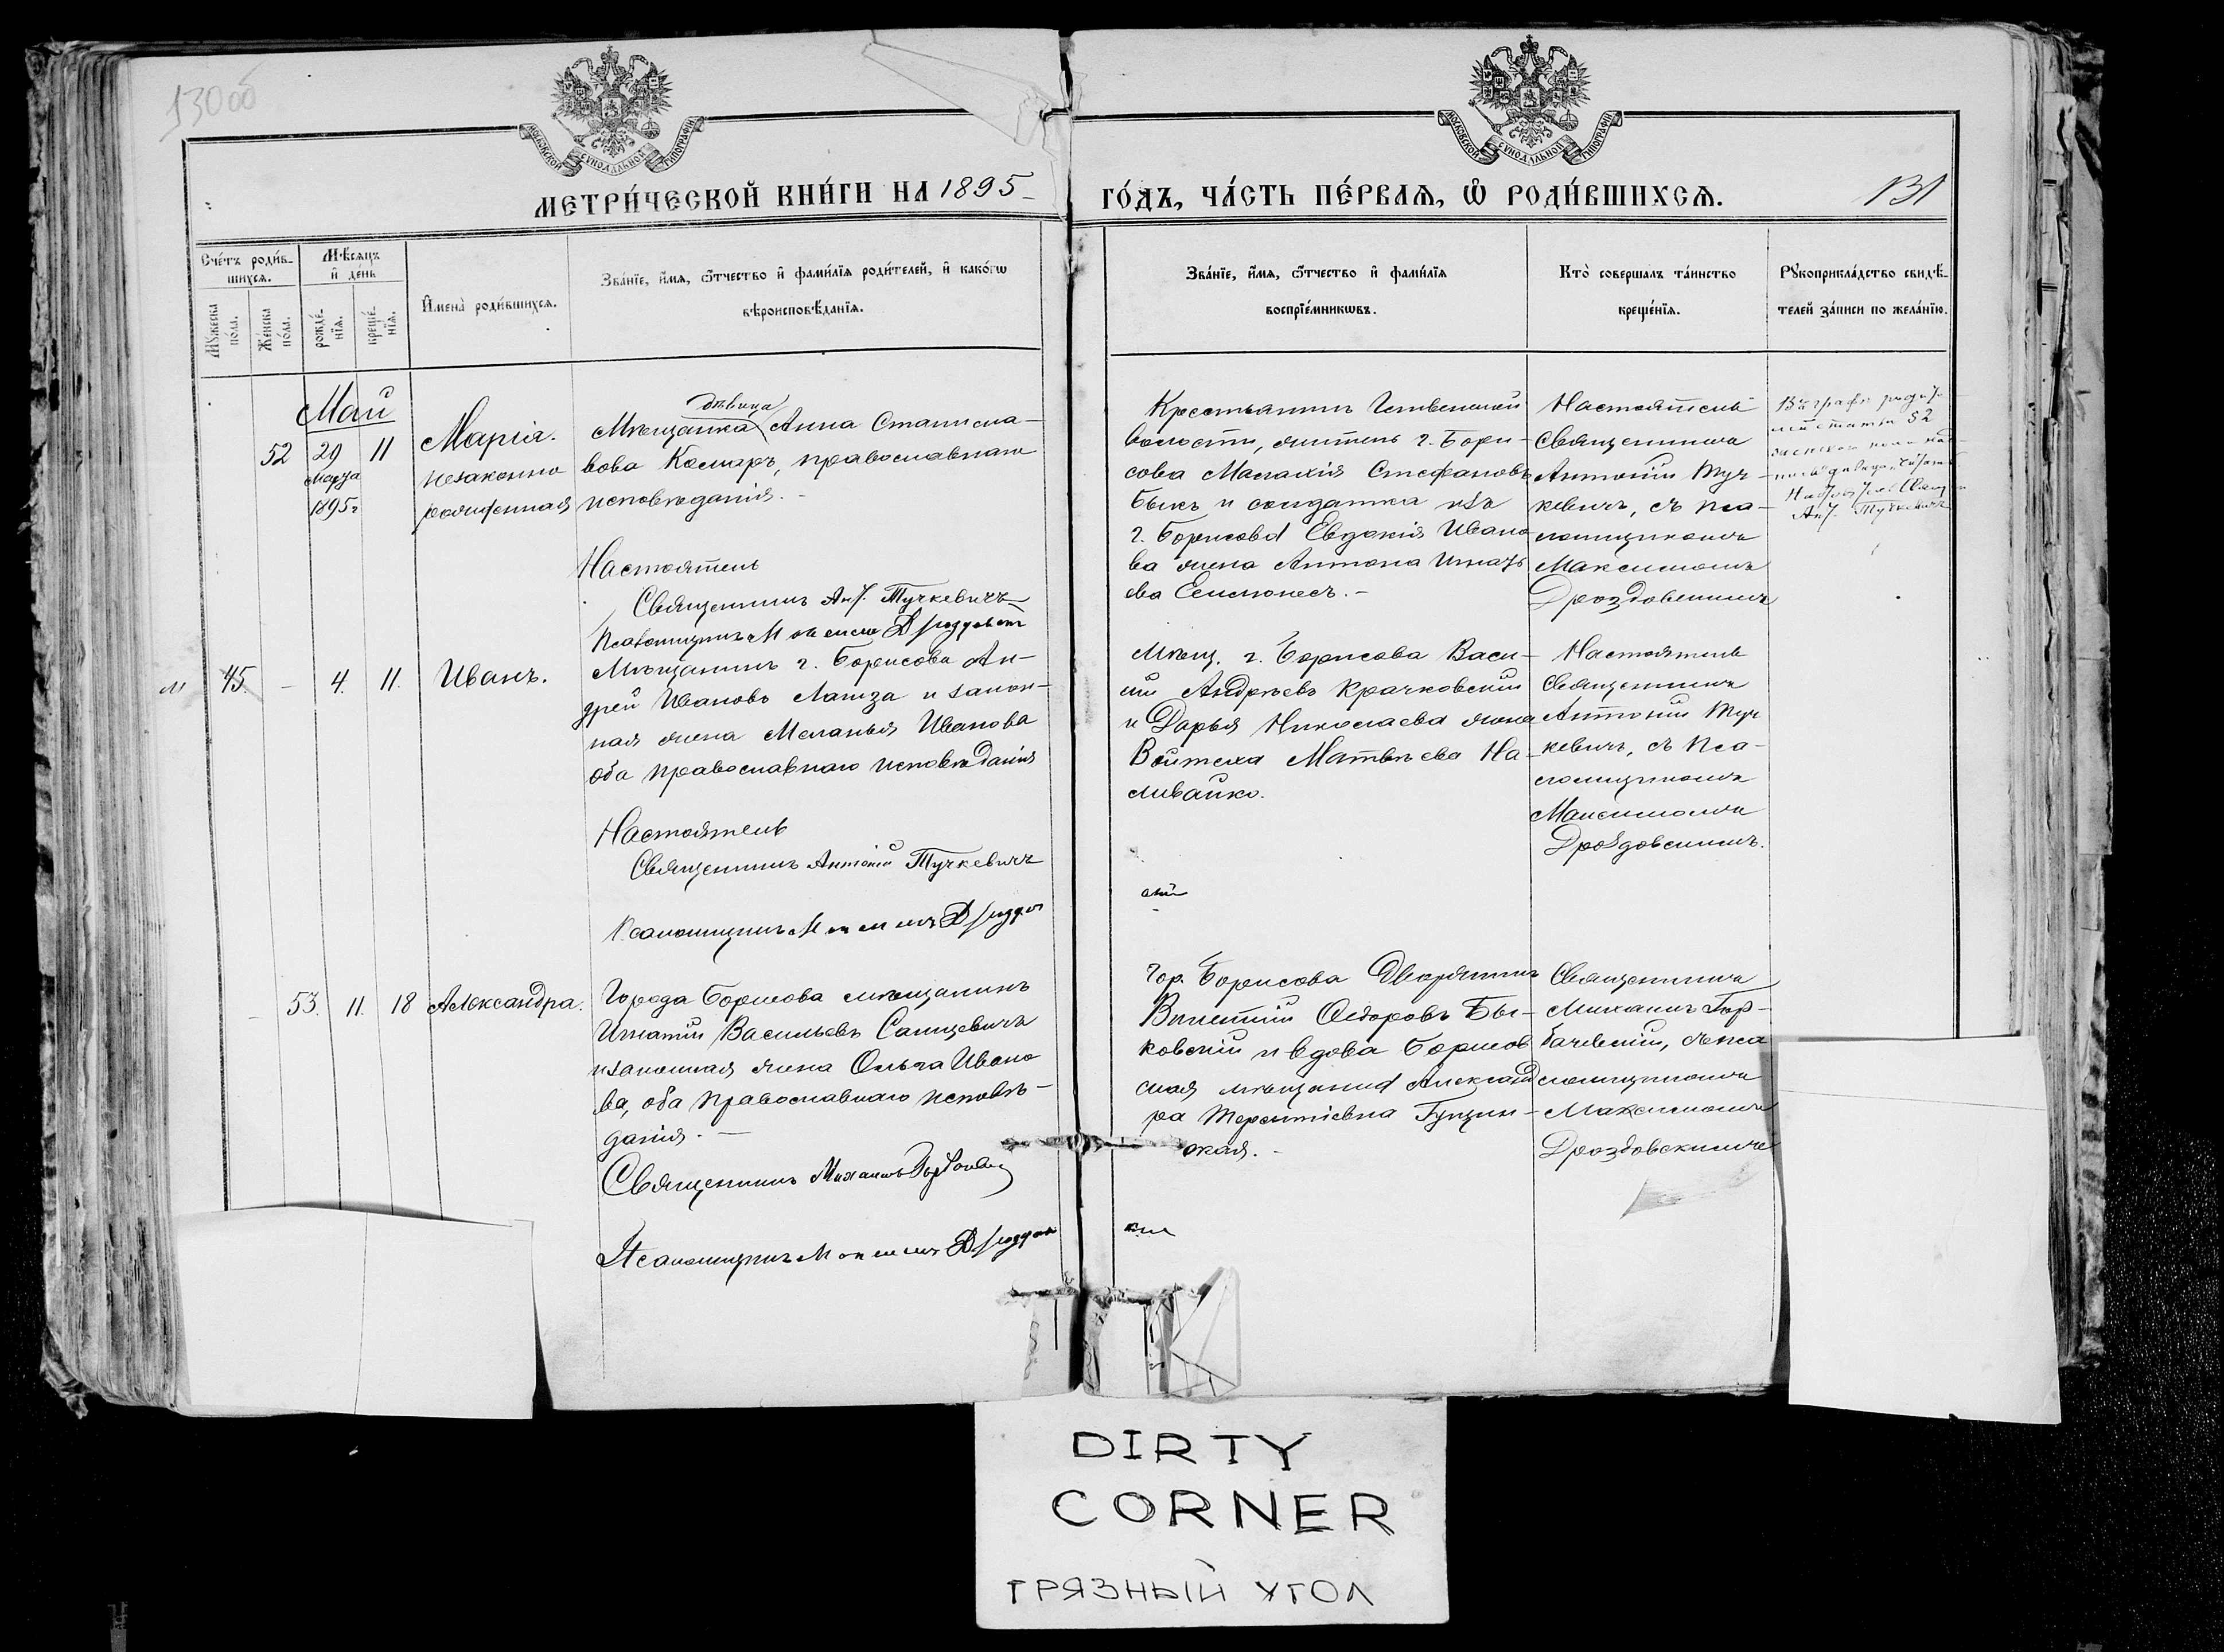 13000
МОСКОВСКОЙ СУНОДАЛЬНОЙ ТИПОГРАФІИ
МОСКОВСКОЙ СУНОДАЛЬНОЙ ТИПОГРАФІИ
МЕТРИ́ЧЕСКОЙ КНИ́ГИ НА 1895
ГО́ДЪ, ЧА́СТЬ ПЕ́РВАЯ, Ѡ҆ РОДИ́ВШИХСЯ.
131
Сче́тъ роди́в-
шихся.
Мѣ́сяцъ
и҆ де́нь
Му́жеска
по́ла.
Же́нска
по́ла.
рожде́-
нїѧ.
креще́-
нїѧ.
И҆мена̀ роди́вшихся.
Зва́нїе, и҆́мѧ, ѻ҆́тчество и҆ фами́лїѧ роди́телей, и҆ како́гѡ
вѣроисповѣ́данїѧ.
Зва́нїе, и҆́мѧ, ѻ҆́тчество и҆ фами́лїѧ
воспрїе́мникѡвъ.
Кто̀ соверша́лъ та́инство
креще́нїѧ.
Рꙋкоприкла́дство свидѣ́-
телей за́писи по жела́нїю.
Май
52
29
Марта
1895 г
11
Марія.
незаконно
рожденная
дѣвица
Мѣщанка Анна Станисла-
вова Комаръ, православнаго
исповѣданія. -
Настоятель
Священникъ Ант. Тучкевичъ
Псаломщикъ Максимъ Дроздовскій
Крестьянинъ
волости, житель г. Бори-
сова Малахія Стефановъ
Быкъ и солдатка изъ
г. Борисова Евдокія Ивано
ва жена Антона Игнать
ева -
Настоятель
Священникъ
Антоній Туч-
кевичъ, съ пса-
ломщикомъ
Максимомъ
Дроздовскимъ
Въ графѣ родите
лей статьи 52
Ант. Тучкевичъ
м
45.
-
4.
11.
Иванъ.
Мѣщанинъ г. Борисова Ан-
дрей Ивановъ и закон-
ная жена Меланья Иванова
оба православнаго исповѣданія
Настоятель
Священникъ Антоній Тучкевичъ
Псаломщикъ Максимъ Дроздов
Мѣщ. г. Борисова Васи-
лій Андреевъ Крачковскій
и Дарья Николаева жена
Войтеха Матвѣева На-
ливайко.
скій
Настоятель
Священникъ
Антоній Туч
кевичъ, съ пса-
ломщикомъ
Максимомъ
Дроздовскимъ.
-
53.
11.
18
Александра.
Города Борисова мѣщанинъ
Игнатій Васильевъ
и законная жена Ольга Ивано
ва, оба православнаго исповѣ-
данія. -
Священникъ Михаилъ Горбачевскій
Псаломщикъ Максимъ Дроздов
Гор. Борисова Дворянинъ
Викентій Ѳедоровъ Бы-
ковскій и вдова Борисов
ская мѣщанка Александ
ра Терентіевна Гущин-
ская. -
скій
Священникъ
Михаилъ Гор-
бачевскій, съ пса
ломщикомъ
Максимомъ
Дроздовскимъ
DIRTY
CORNER
ГРЯЗНЫЙ УГОЛ